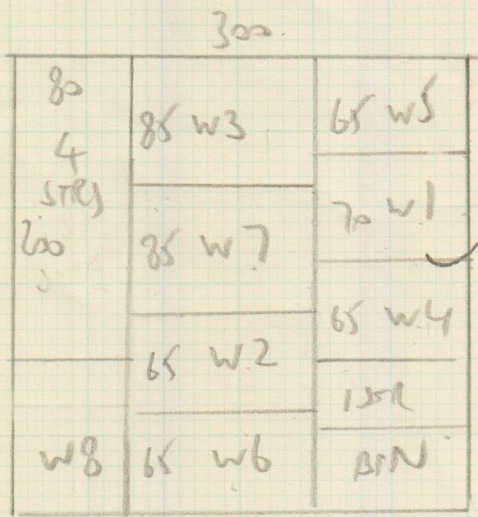 300
80
4
STRS
200
W8
85 W3
85 W7
65 W2
65 W6
65 W5
70 W1
65 W4
1 STR